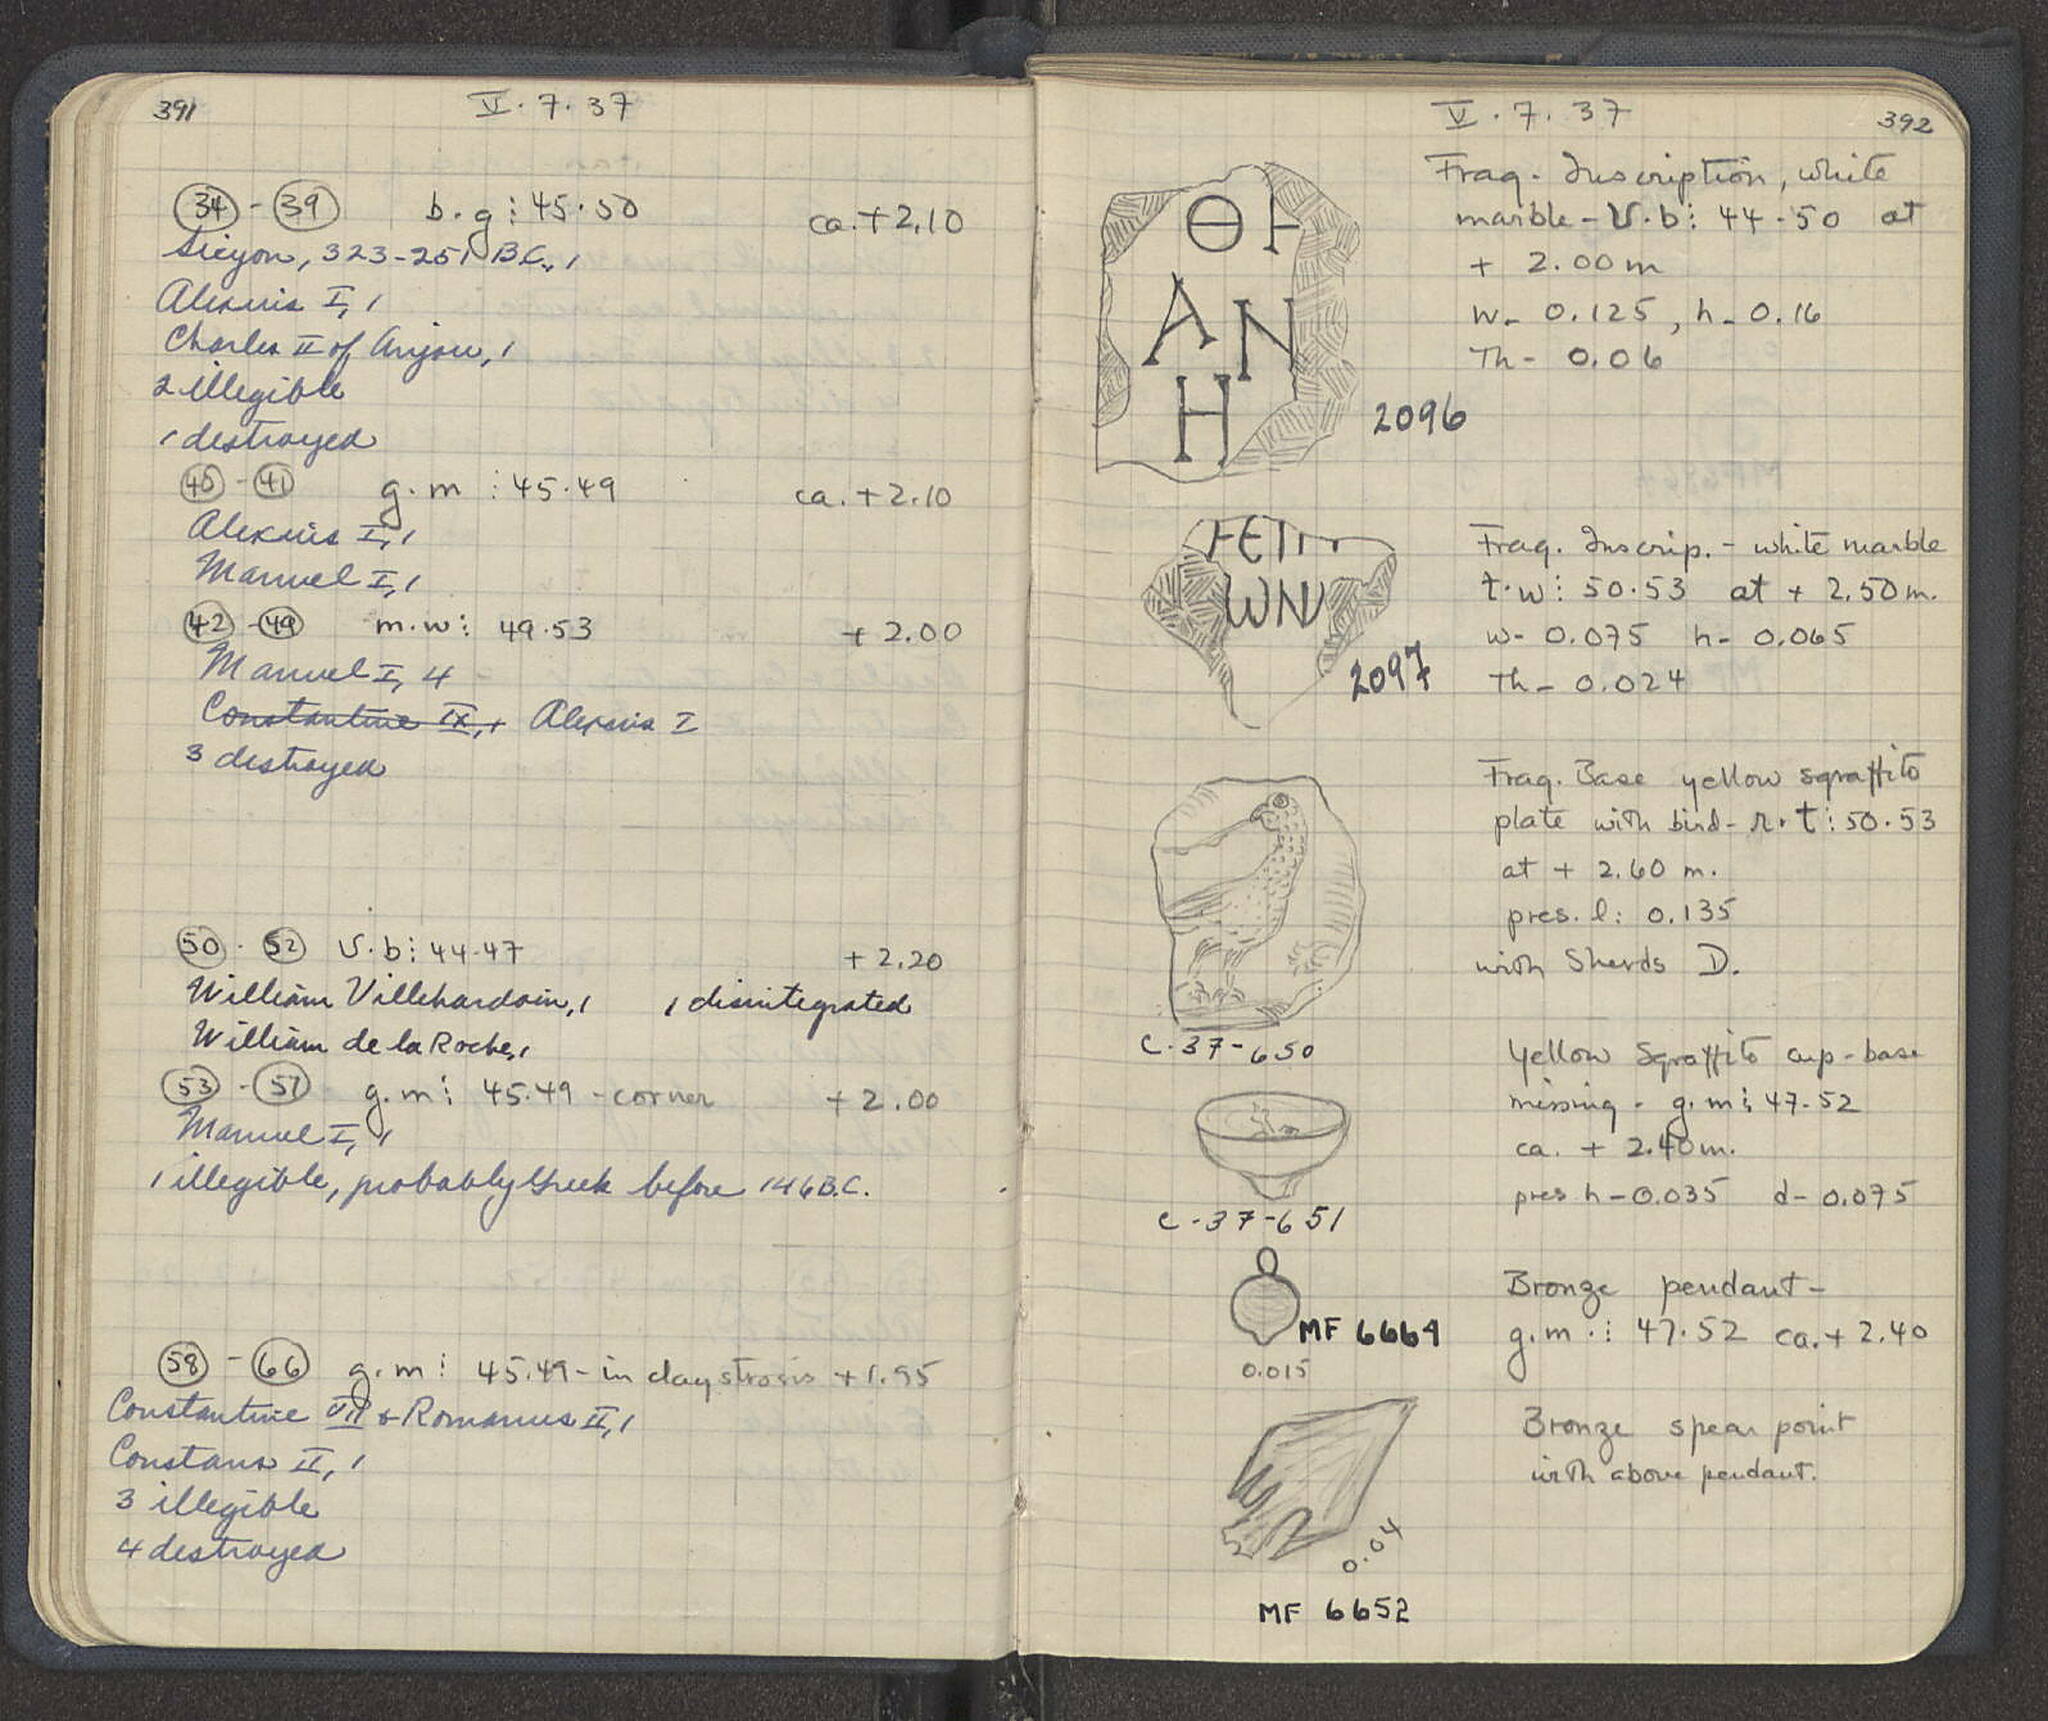 391
V. 7. 37
34 - 39 b.g⋮ 45.50 ca. +2.10
Sicyon, 323-251 B.C., 1
Alexius I, 1
Charles II of Anjou, 1
2 illegible
1 destroyed
40 - 41 g.m⋮ 45.49 ca. +2.10
Alexius I, 1
Manuel I, 1
42 - 49 m.w⋮ 49.53 + 2.00
Manuel I, 4
Constantine IX, 1 Alexius I
3 destroyed
50 - 52 V.b⋮ 44-47 + 2.20
William Villehardoin, 1 1 disintegrated
William de la Roche, 1
53 - 57 g.m⋮ 45.49 - corner + 2.00
Manuel I, 1
1 illegible, probably Greek before 146 B.C.
58 - 66 g.m⋮ 45.49 - in clay strosis +1.95
Constantine VII & Romanus II, 1
Constans II, 1
3 illegible
4 destroyed
V. 7. 37
392
Frag. Inscription, white
marble - V.b⋮ 44-50 at
+ 2.00 m
w- 0.125, h- 0.16
Th- 0.06
Θ Η
Α Ν
Η
2096
Frag. Inscrip. - white marble
t.w⋮ 50.53 at + 2.50 m.
w- 0.075 h- 0.065
Th- 0.024
WN
2097
Frag. Base yellow sgraffito
plate with bird - r.t⋮ 50.53
at + 2.60 m.
pres. l: 0.135
with Sherds D.
C-37-650
Yellow Sgraffito cup - base
missing - g.m⋮ 47-52
ca. + 2.40 m.
pres h - 0.035 d- 0.075
C-37-651
Bronze pendant -
g.m⋮ 47.52 ca. + 2.40
MF 6664
0.015
Bronze spear point
with above pendant.
0.04
MF 6652